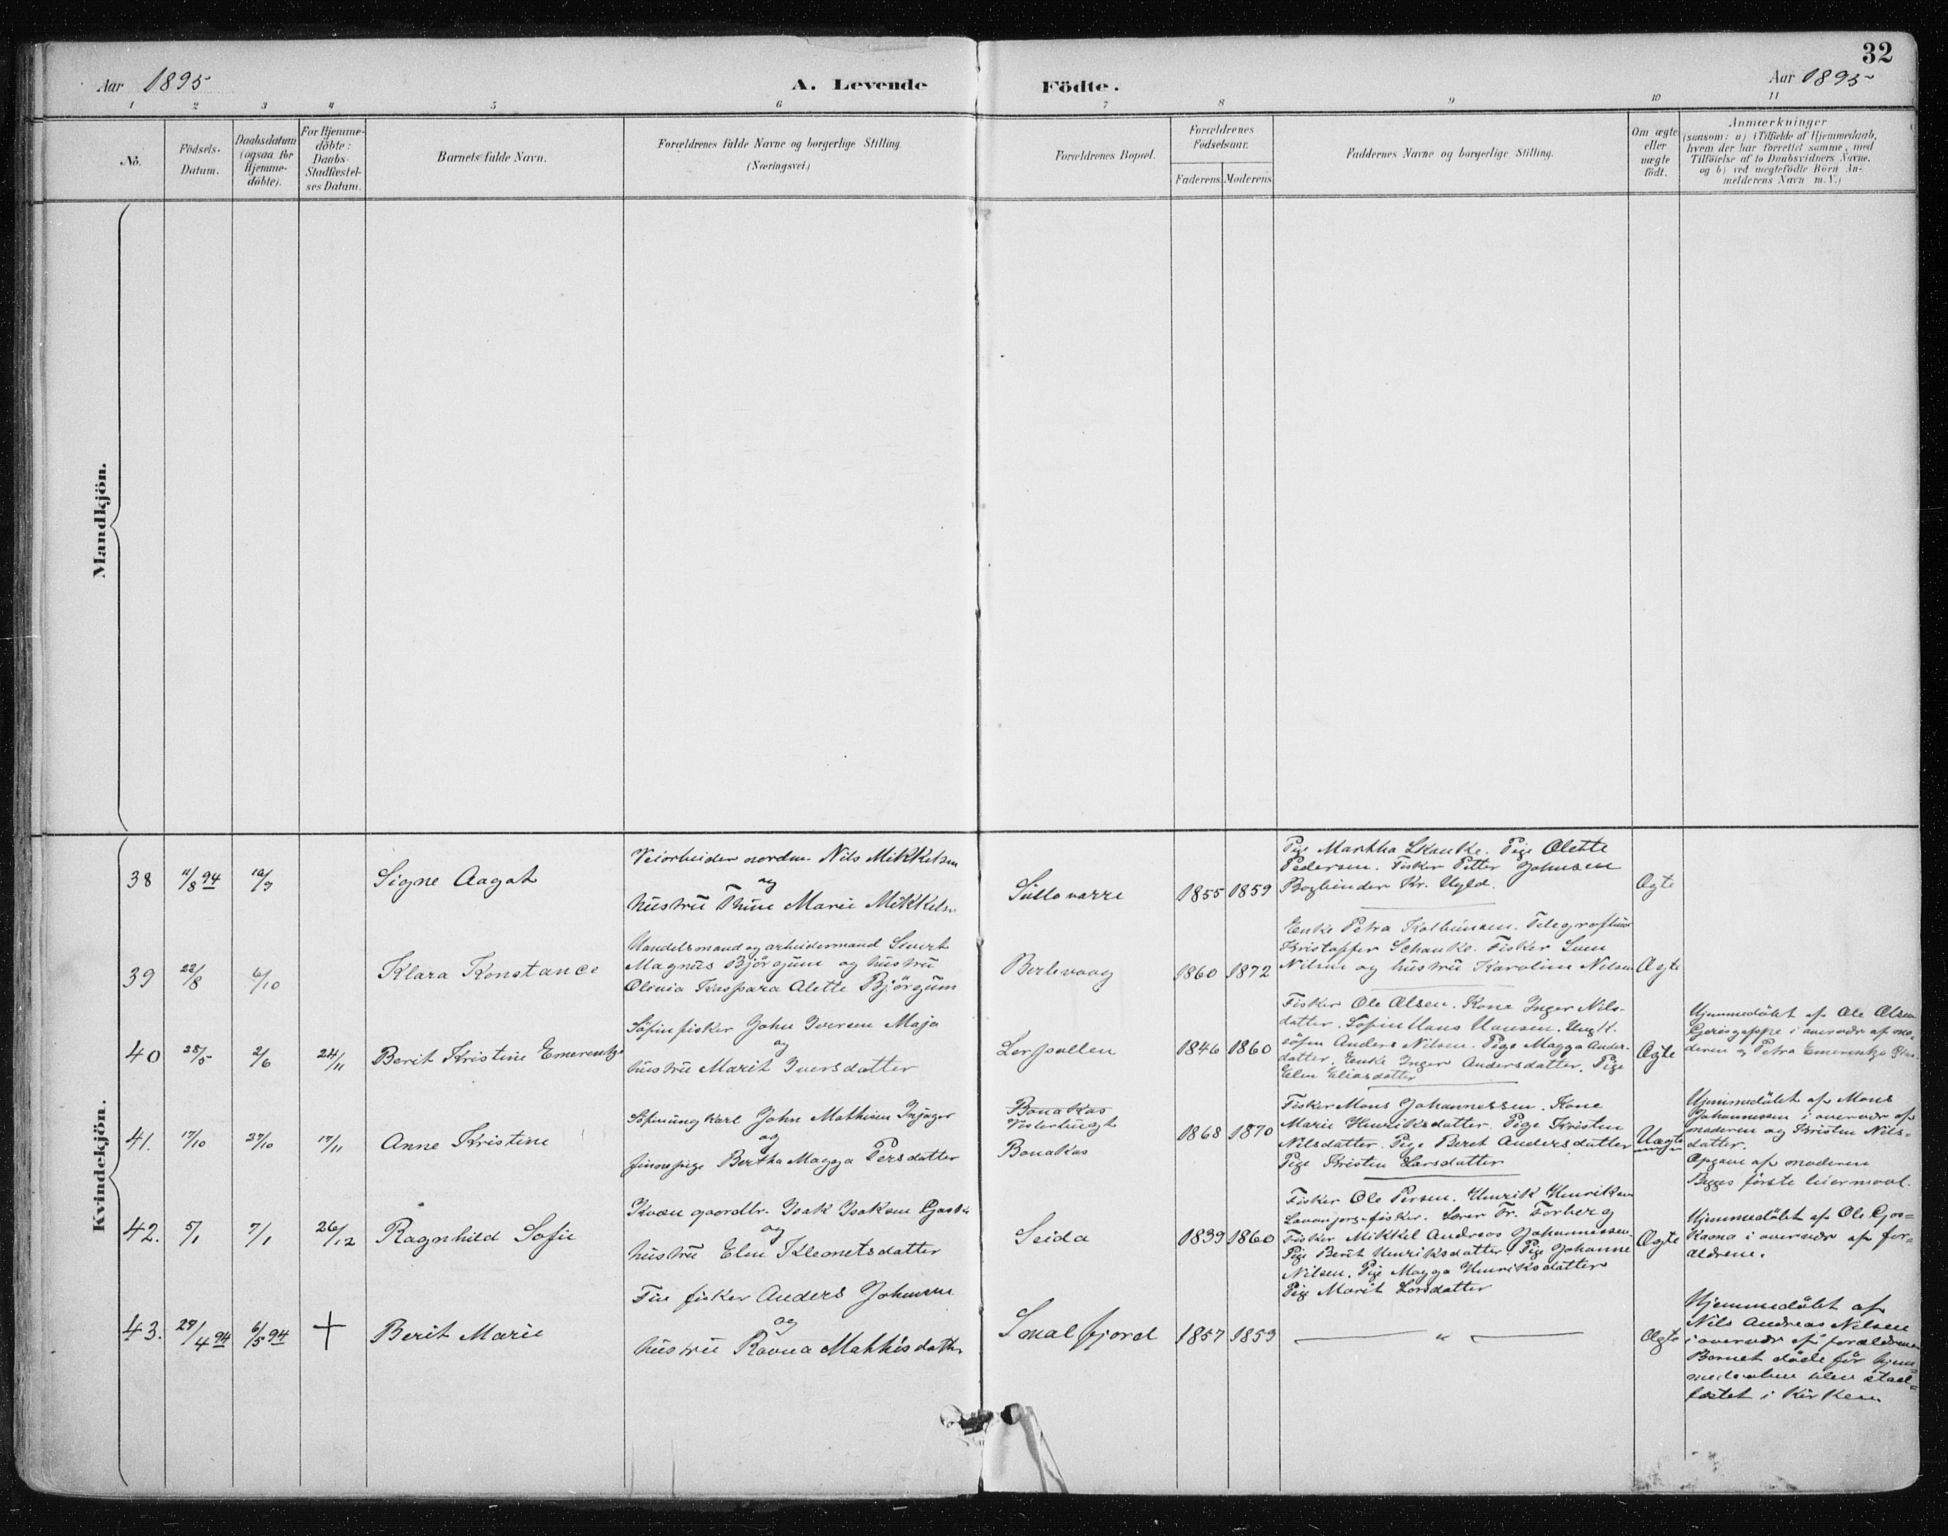 32
Aar 1895
A. Levende
Födte.
Aar 1895
1 2 3 4 5 6 7 8 9 10 11
No.
Födsels-
Datum.
Daabsdatum
(ogsaa for
Hjemme-
döbte).
For Hjemme-
döbte:
Daabs-
Stadfæstel-
ses Datum.
Barnets fulde Navn.
Forældrenes fulde Navne og borgerlige Stilling
(Næringsvei.)
Forældrenes Bopæl.
Forældrenes
Födselsaar.
Faderens.
Moderens.
Faddernes Navne og borgerlige Stilling.
Om ægte
eller
uægte
födt.
Anmærkninger
(saasom: a) i Tilfælde af Hjemmedaab,
hvem der har forrettet samme, med
Tilföielse af to Daabsvidners Navne.
og b) ved uægtefödte Börn An-
melderens Navn m. V.)
Mandkjön.
Kvindekjön.
38
11/8 94
Signe Aagot
Veiarbeider nordm. Nils Mikkelsen
og
hustru Thine Marie Mikkels.
1855
1859
Pige Martha Skanke. Pige Olette
Pedersen. Fisker Petter Johnsen
Bogbinder Kr. Hyld.
Ægte
39
22/8
6/10
Klara Konstance
Handelsmand og arbeidermand Sivert
Magnus Björgum og hustru
Olevia Kaspara Alette Björgum
Berlevaag
1860
1872
Enke Petra Kolbunsen. Telegrafbud
Kristoffer Schanke. Fisker
Nilsen og hustru Karoline Nilsen
Ægte
40
28/5
2/6
24/11
Berit Kristine Emerentze
Söfin fisker John Iversen Maja
og
hustru Marit Iversdatter
Lerpollen
1846
1860
Fisker Ole Olsen. Kone Inger Nils-
datter. Söfin Hans Hansen. Ungk.
söfin Anders Nilsen. Pige Magga Anders-
datter. Enke Inger Andersdatter. Pige
Elen Eliasdatter
Ægte
Hjemmedöbt af Ole Olsen
i overvær af mo-
deren og Petra Emerentze
41.
17/10
27/10
17/11
Anne Kristine
Söfinungkarl John Mathisen
og
finnepige Bertha Magga Persdatter
Bonakas
Vesterbugt
Bonakas
1868
1870
Fisker Mons Johannessen. Kone
Marie Henriksdatter. Pige Kristen
Nilsdatter. Pige Beret Andersdatter
Pige Kristen Larsdatter
Uægte
Hjemmedöbt af Mons
Johannessen i overvær af
moderen og Kristen Nils-
datter.
Opgave af moderen
Begges förste leiermaal.
42.
5/1
7/1
26/12
Ragnhild Sofie
Kvæn gaardbr. Isak Isaksen
og
hustru Elen Klemetsdatter
Seida
1839
1860
Fisker Ole Persen. Henrik Henriksen
fisker. Lærer Fr. Forberg
Fisker Mikkel Andreas Johannessen.
Pige Berit Henriksdatter. Pige Johanne
Nilsen. Pige Magga Henriksdatter
Pige Marit Larsdatter
Ægte
Hjemmedöbt af Ole
i overvær af for-
ældrene.
43.
29/4 94
6/5 94
+
Berit Marie
Fin fisker Anders Johnsen
og
hustru Ravna Mathisdatter
Smalfjord
1857
1853
— " —
Ægte
Hjemmedöbt af
Nils Andreas Nilsen
i overvær af forældrene
Barnet döde för hjem-
medaaben blev stad-
fæstet i kirken